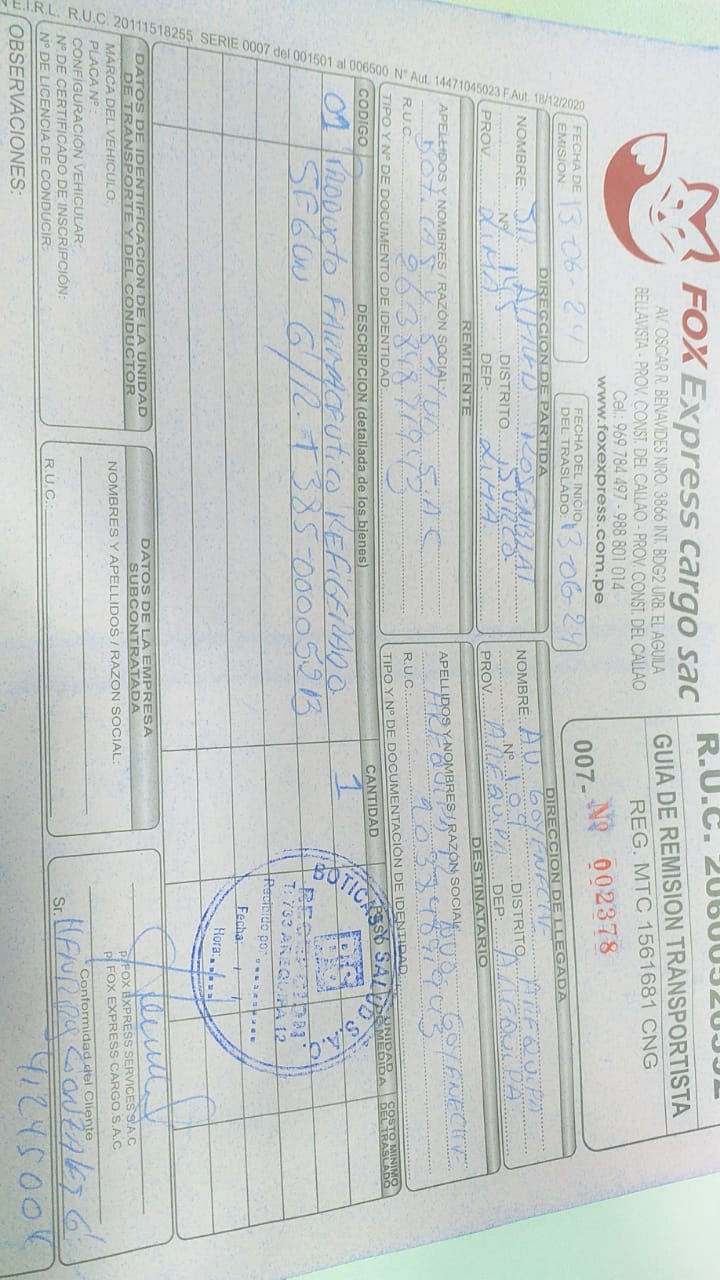 FOX Express cargo sac
AV. OSCAR R. BENAVIDES NRO. 3866 INT. BDG2 URB. EL AGUILA
BELLAVISTA - PROV. CONST. DEL CALLAO - PROV. CONST. DEL CALLAO
Cel.: 969 784 497 - 988 801 014
www.foxexpress.com.pe
R.U.C.
GUIA DE REMISION TRANSPORTISTA
REG. MTC 1561681 CNG
007- Nº 002378
FECHA DE EMISION: 13-06-24
FECHA DEL INICIO DEL TRASLADO: 13-06-24
DIRECCION DE PARTIDA
NOMBRE: ALFREDO ROSENBLAT
Nº DISTRITO SURCO
PROV. LIMA DEP. LIMA
DIRECCION DE LLEGADA
NOMBRE: AV GOYENECHE AREQUIPA
Nº 109 DISTRITO AREQUIPA
PROV. AREQUIPA DEP.
REMITENTE
APELLIDOS Y NOMBRES / RAZÓN SOCIAL:
SALUD S.A.C
R.U.C.
TIPO Y Nº DE DOCUMENTO DE IDENTIDAD
DESTINATARIO
APELLIDOS Y NOMBRES / RAZÓN SOCIAL
AREQUIPA 12 GOYENECHE
R.U.C.
TIPO Y Nº DE DOCUMENTACIÓN DE IDENTIDAD
CODIGO DESCRIPCION (detallada de los bienes) CANTIDAD PESO UNIDAD MEDIDA COSTO MINIMO DEL TRASLADO
01 Producto FARMACEUTICO REFIGERADO 1
SEGUN G/R. T385-00005213
BOTICAS SALUD S.A.C.
BS
RECEPCION
T: 733 AREQUIPA 12
Recibido por:
Fecha: / /
Hora:
DATOS DE IDENTIFICACION DE LA UNIDAD
DE TRANSPORTE Y DEL CONDUCTOR
MARCA DEL VEHICULO:
PLACA Nº :
CONFIGURACIÓN VEHICULAR:
Nº DE CERTIFICADO DE INSCRIPCIÓN:
Nº DE LICENCIA DE CONDUCIR:
DATOS DE LA EMPRESA
SUBCONTRATADA
NOMBRES Y APELLIDOS / RAZON SOCIAL:
R.U.C.:
p' FOX EXPRESS SERVICES S.A.C
p' FOX EXPRESS CARGO S.A.C
Conformidad del Cliente
Sr.
OBSERVACIONES:
E.I.R.L. R.U.C. 20111518255 SERIE 0007 del 001501 al 006500 Nº Aut. 14471045023 F.Aut. 18/12/2020